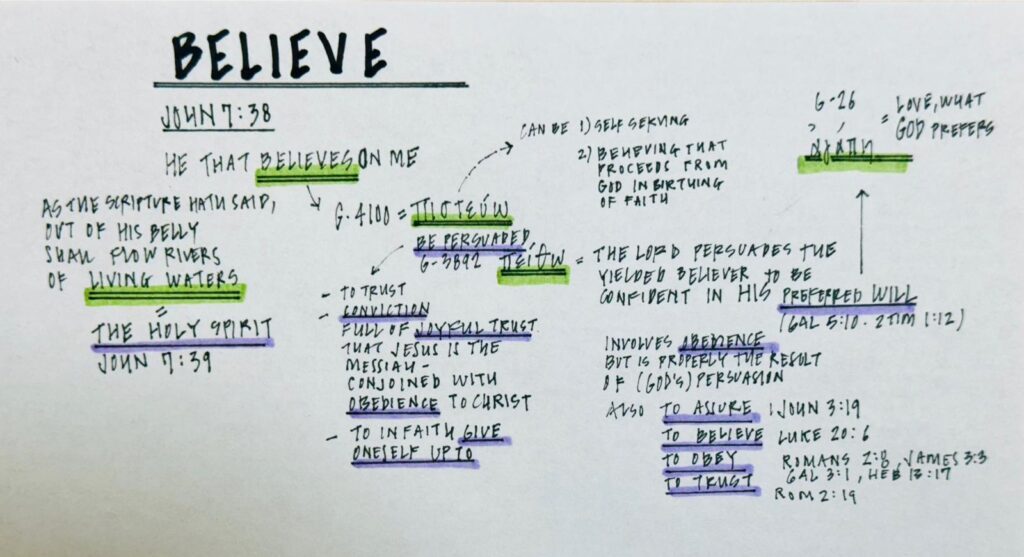 BELIEVE
JOHN 7:38
HE THAT BELIEVES ON ME
AS THE SCRIPTURE HATH SAID,
OUT OF HIS BELLY
SHALL FLOW RIVERS
OF LIVING WATERS
=
THE HOLY SPIRIT
JOHN 7:39
G-4100 = πιστεύω
CAN BE 1) SELF SERVING
2) BELIEVING THAT
PROCEEDS FROM
GOD IN BIRTHING
OF FAITH
BE PERSUADED
G-3892 πείθω = THE LORD PERSUADES THE
YIELDED BELIEVER TO BE
CONFIDENT IN HIS PREFERRED WILL
(GAL 5:10 - 2 TIM 1:12)
G-26
ἀγάπη = LOVE, WHAT
GOD PREFERS
- TO TRUST
- CONVICTION
FULL OF JOYFUL TRUST
THAT JESUS IS THE
MESSIAH -
CONJOINED WITH
OBEDIENCE TO CHRIST
- TO IN FAITH GIVE
ONESELF UP TO
INVOLVES OBEDIENCE,
BUT IS PROPERLY THE RESULT
OF (GOD'S) PERSUASION
ALSO TO ASSURE 1 JOHN 3:19
TO BELIEVE LUKE 20:6
TO OBEY ROMANS 2:8, JAMES 3:3
GAL 3:1, HEB 13:17
TO TRUST ROM 2:19